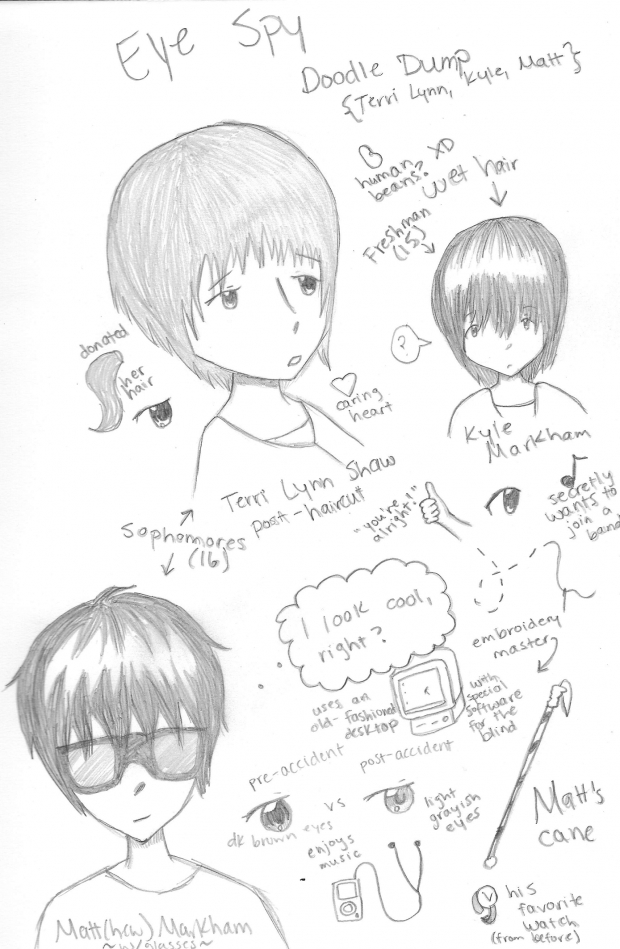 Eye Spy
Doodle Dump
{Terri Lynn, Kyle, Matt}
human XD
beans?
wet hair
Freshman
(15)
donated
her
hair
?
caring
heart
Kyle
Markham
Terri Lynn Shaw
post-haircut
"you're
alright!"
secretly
wants to
join a
band
Sophomores
(16)
I look cool,
right?
embroidery
master
uses an
old-fashioned
desktop
with
special
software
for the
blind
pre-accident
post-accident
vs
dk brown eyes
light
grayish
eyes
enjoys
music
Matt's
cane
his
favorite
watch
(from before)
Matt(hew) Markham
~w/ glasses~